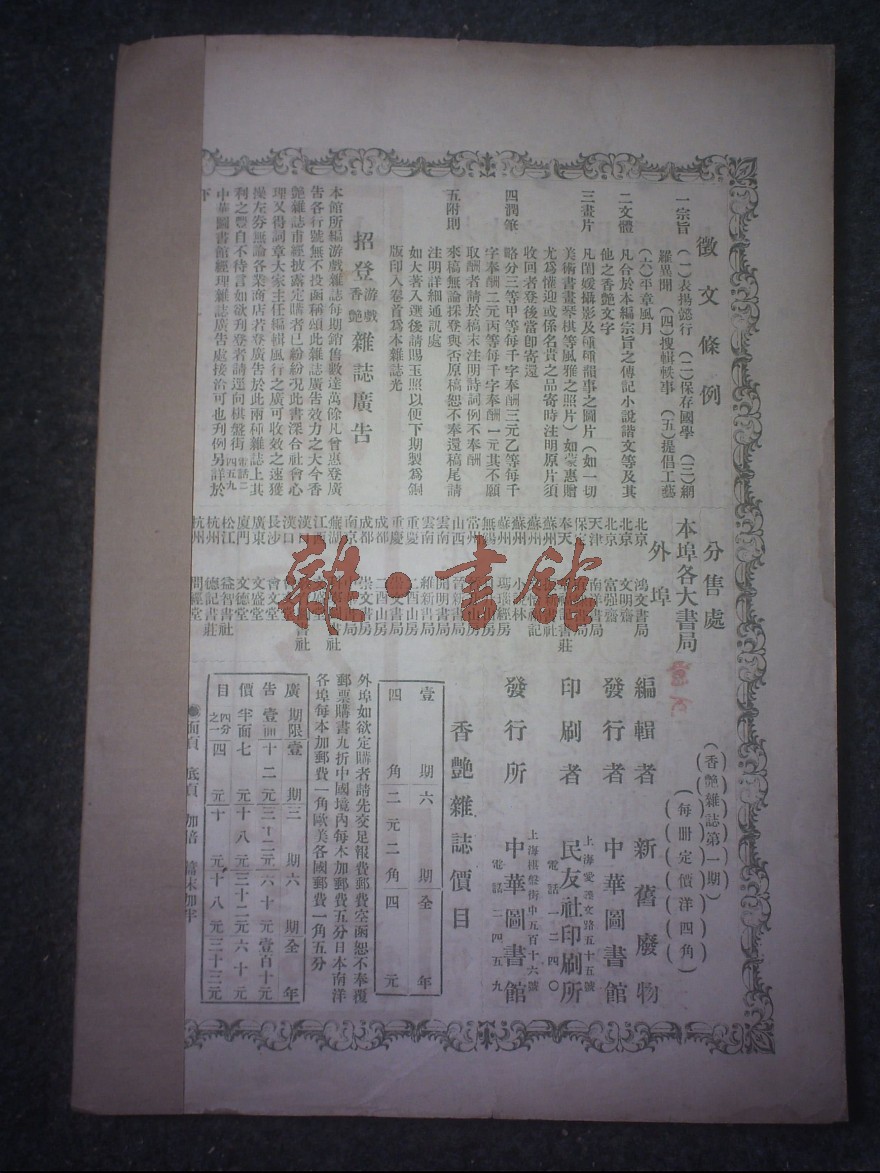 徵文條例
一宗旨 (一)表揚懿行 (二)保存國學 (三)網
羅異聞 (四)搜輯軼事 (五)提倡工藝
(六)平章風月
二文體 凡合於本編宗旨之傳記小說諧文等及其
他之香艷文字
三畫片 凡閨媛攝影及種種韻事之圖片(如一切
美術書畫琴棋等風雅之照片)如蒙惠贈
尤爲懽迎或係名貴之品寄時注明原片須
收回者登後當卽寄還
四潤筆 略分三等甲等每千字奉酬三元乙等每千
字奉酬二元丙等每千字奉酬一元其不願
取酬者請於稿末注明詩詞例不奉酬
五附則 來稿無論採登與否原稿恕不奉還稿尾請
注明詳細通訊處
如大著入選後請賜玉照以便下期製爲銅
版印入卷首爲本雜誌光
招登游戲香艷雜誌廣告
本館所編游戲雜誌每期銷售數達萬餘凡曾惠登廣
告各行號無不投函稱頌此雜誌廣告效力之大今香
艷雜誌甫經披露定購者已紛紛況此書深合社會心
理又得詞章大家主任編輯風行之廣可收效之速獲
操左券無論各業商店若登廣告於此兩種雜誌上其
利之豐自不待言如欲刋登者請逕向棋盤街電話二四五九
中華圖書館經理雜誌廣告處接洽可也刋例另詳於
下
分售處
本埠各大書局
外埠
北京 鴻文書局
北京 文明齋
北京 富強齋
天津 南洋書局
奉天
蘇州
蘇州
蘇州 小說林
蘇州 瑪瑙經房
無錫
常州
山西 晉新書局
雲南 開明書局
雲南 維新書局
重慶 二酉山房
重慶 崇文書局
成都 二酉山房
成都 崇文書房
南京
蕪湖
江西
漢口
漢口
長沙 會文堂
廣東 文盛堂
廈門 文德堂
松江 益智書社
杭州 德記書莊
杭州 問經堂
雜·書館
(香艷雜誌第一期)
(每册定價洋四角)
編輯者 新舊廢物
發行者 中華圖書館
印刷者 民友社印刷所
上海愛而文路五十五號
電話一二四〇
發行所 中華圖書館
上海棋盤街中五百十六號
電話二四五九
香艷雜誌價目
壹期 六期 全年
四角 二元二角 四元
外埠如欲定購者請先交足報費郵費空函恕不奉覆
郵票購書九折中國境內每本加郵費五分日本南洋
各埠每本加郵費一角歐美各國郵費一角五分
廣告價目
期限 壹期 三期 六期 全年
壹面 十二元 三十二元 六十元 壹百十元
半面 七元 十八元 三十二元 六十元
四分之一 四元 十元 十八元 三十三元
●面頁 底頁 加倍